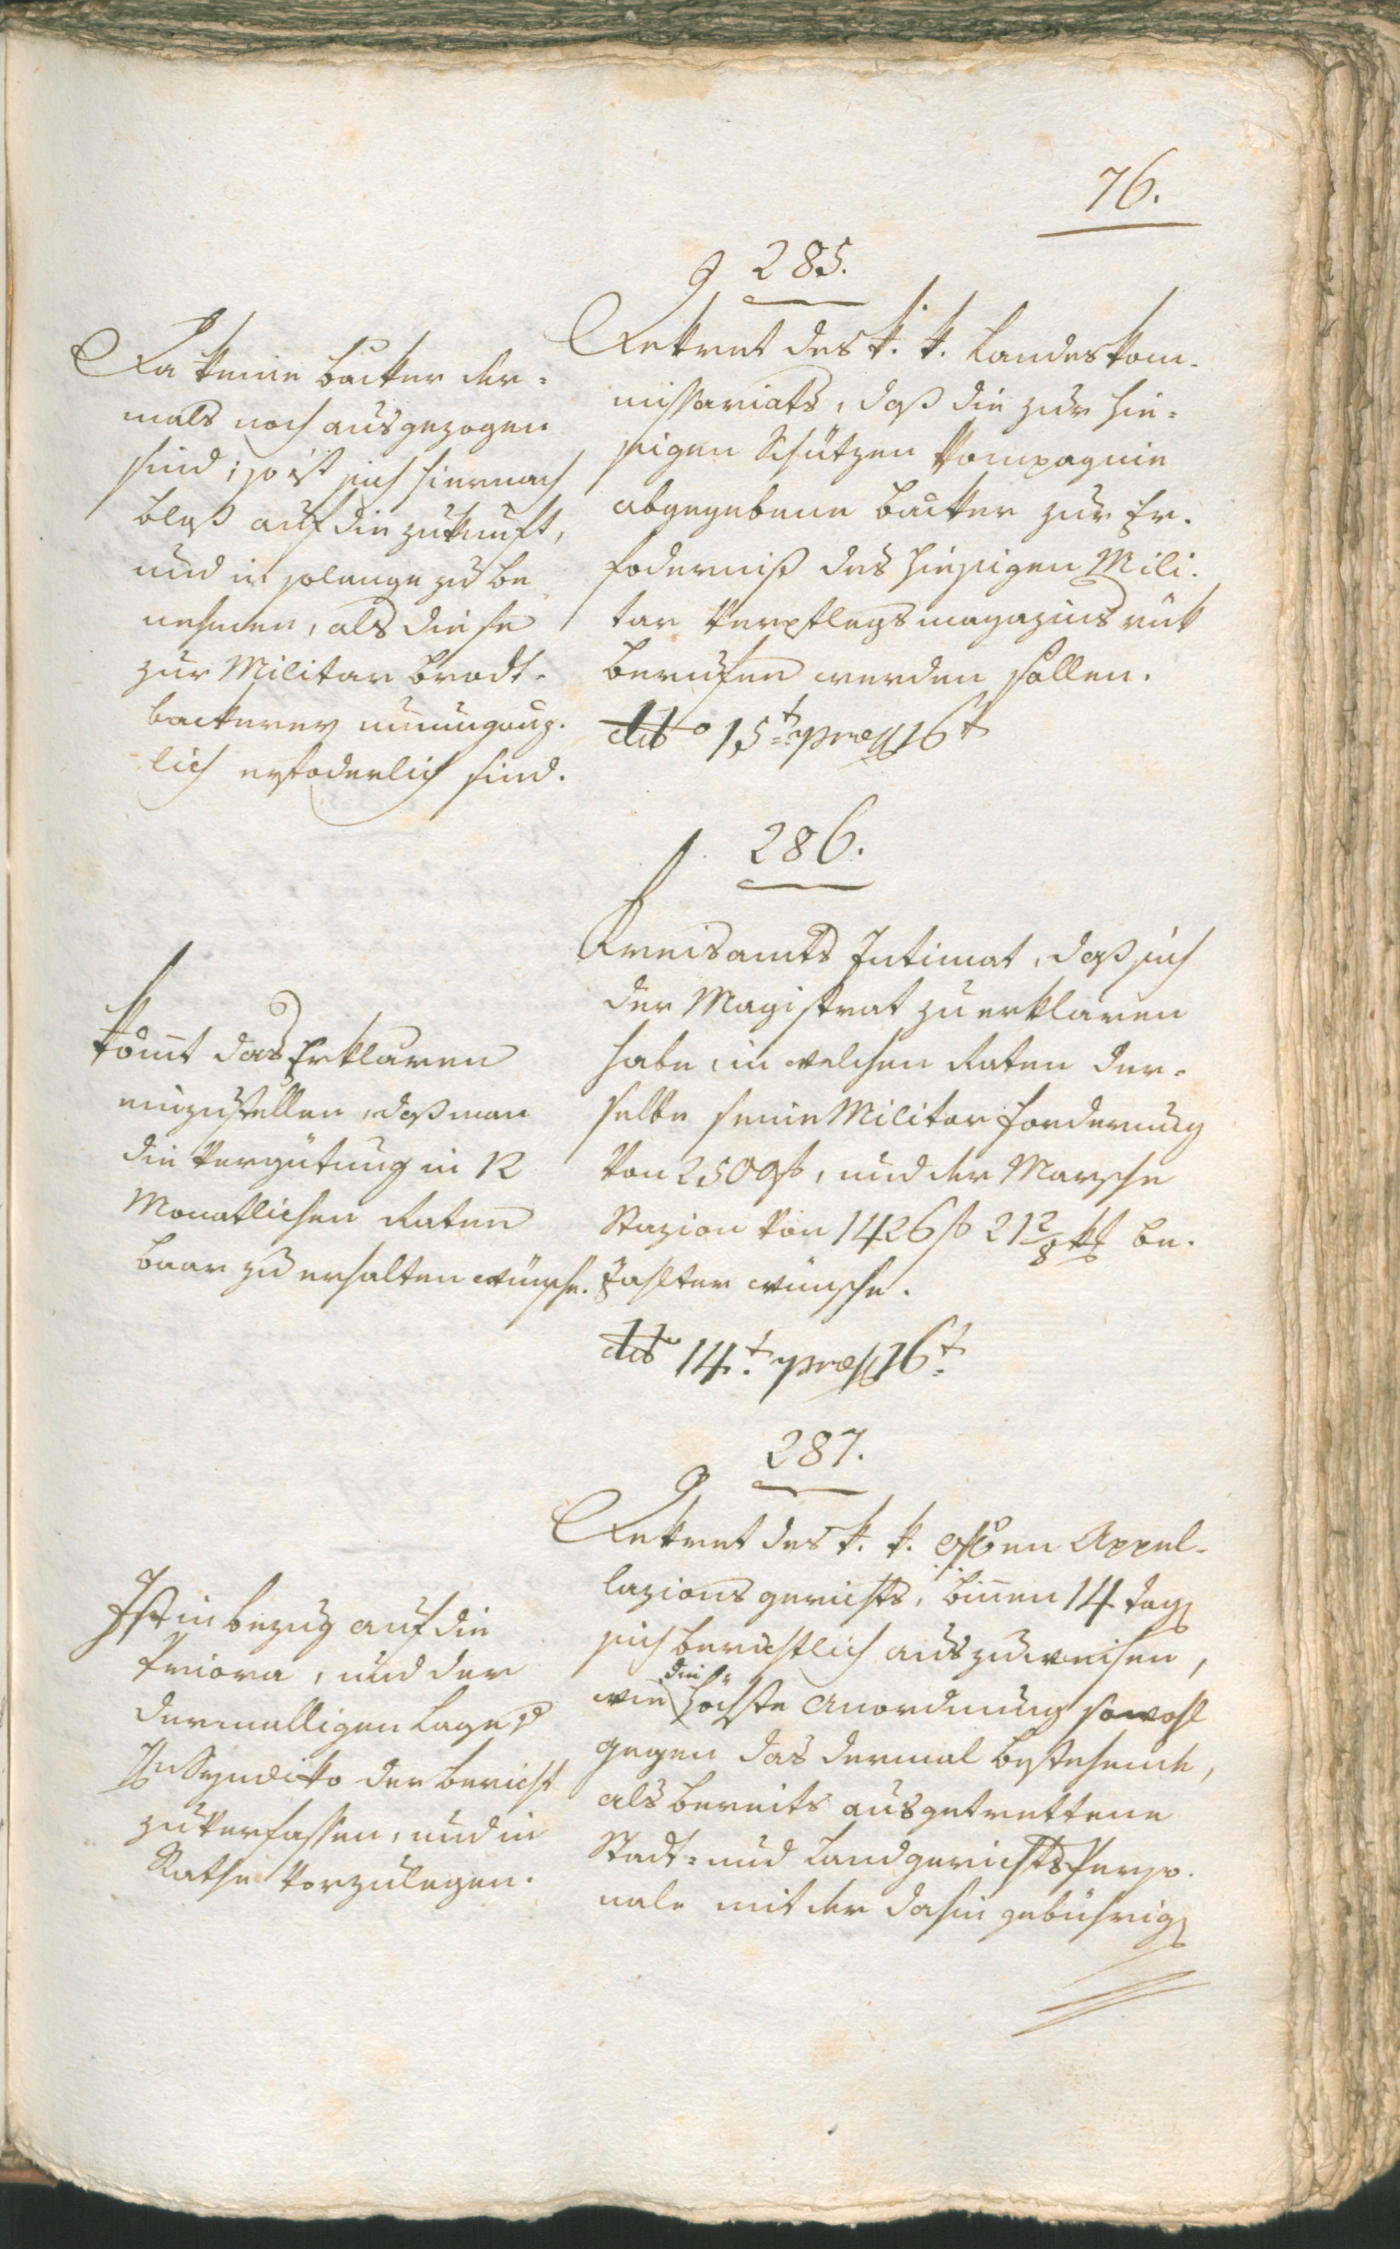 76.
285.
Dekret des k. k. Landeskom-
missariats, daß die zur hie-
sigen Schützen Kompagnie
abgegebene Bäcker zur Er-
foderniß des hiesigen Mili-
tar Verpflegsmagazins rük
berufen werden sollen.
ddo 15t præs 16t
Da keine Bäcker der-
mals noch ausgezogen
sind; so ist sich hiernach
bloß auf die Zukunft,
und in solange zu be
nehmen, als diese
zur Militar Brodt-
bäckerey unumgäng-
lich erfoderlich sind.
286.
Kreisamts Intimat, daß sich
der Magistrat zu erklären
habe, in welchen Raten der-
selbe seine Militar Forderung
von 2509 f, und der Marsche
Stazion von 1426 f 21 2/8 kr be-
zahlter wünsche.
ddo 14t præs 16t
Kommt das Erklären
einzustellen, daß man
die Vergütung in 12
Monatlichen Raten
baar zu erhalten wünsche.
287.
Dekret des k. k. Appel-
lazionsgerichts, binnen 14 Tag
sich berichtlich auszuweisen,
wie die höchste Anordnung sowohl
gegen das dermal bestehende,
als bereits ausgetrettene
Stadt- und Landgerichts Perso-
nale mit der dahin gebührig
Ist in Bezug auf die
Priora, und der
dermalligen Lage
Hn Syndiko der Bericht
zu verfassen, und in
Rathe vorzulegen.